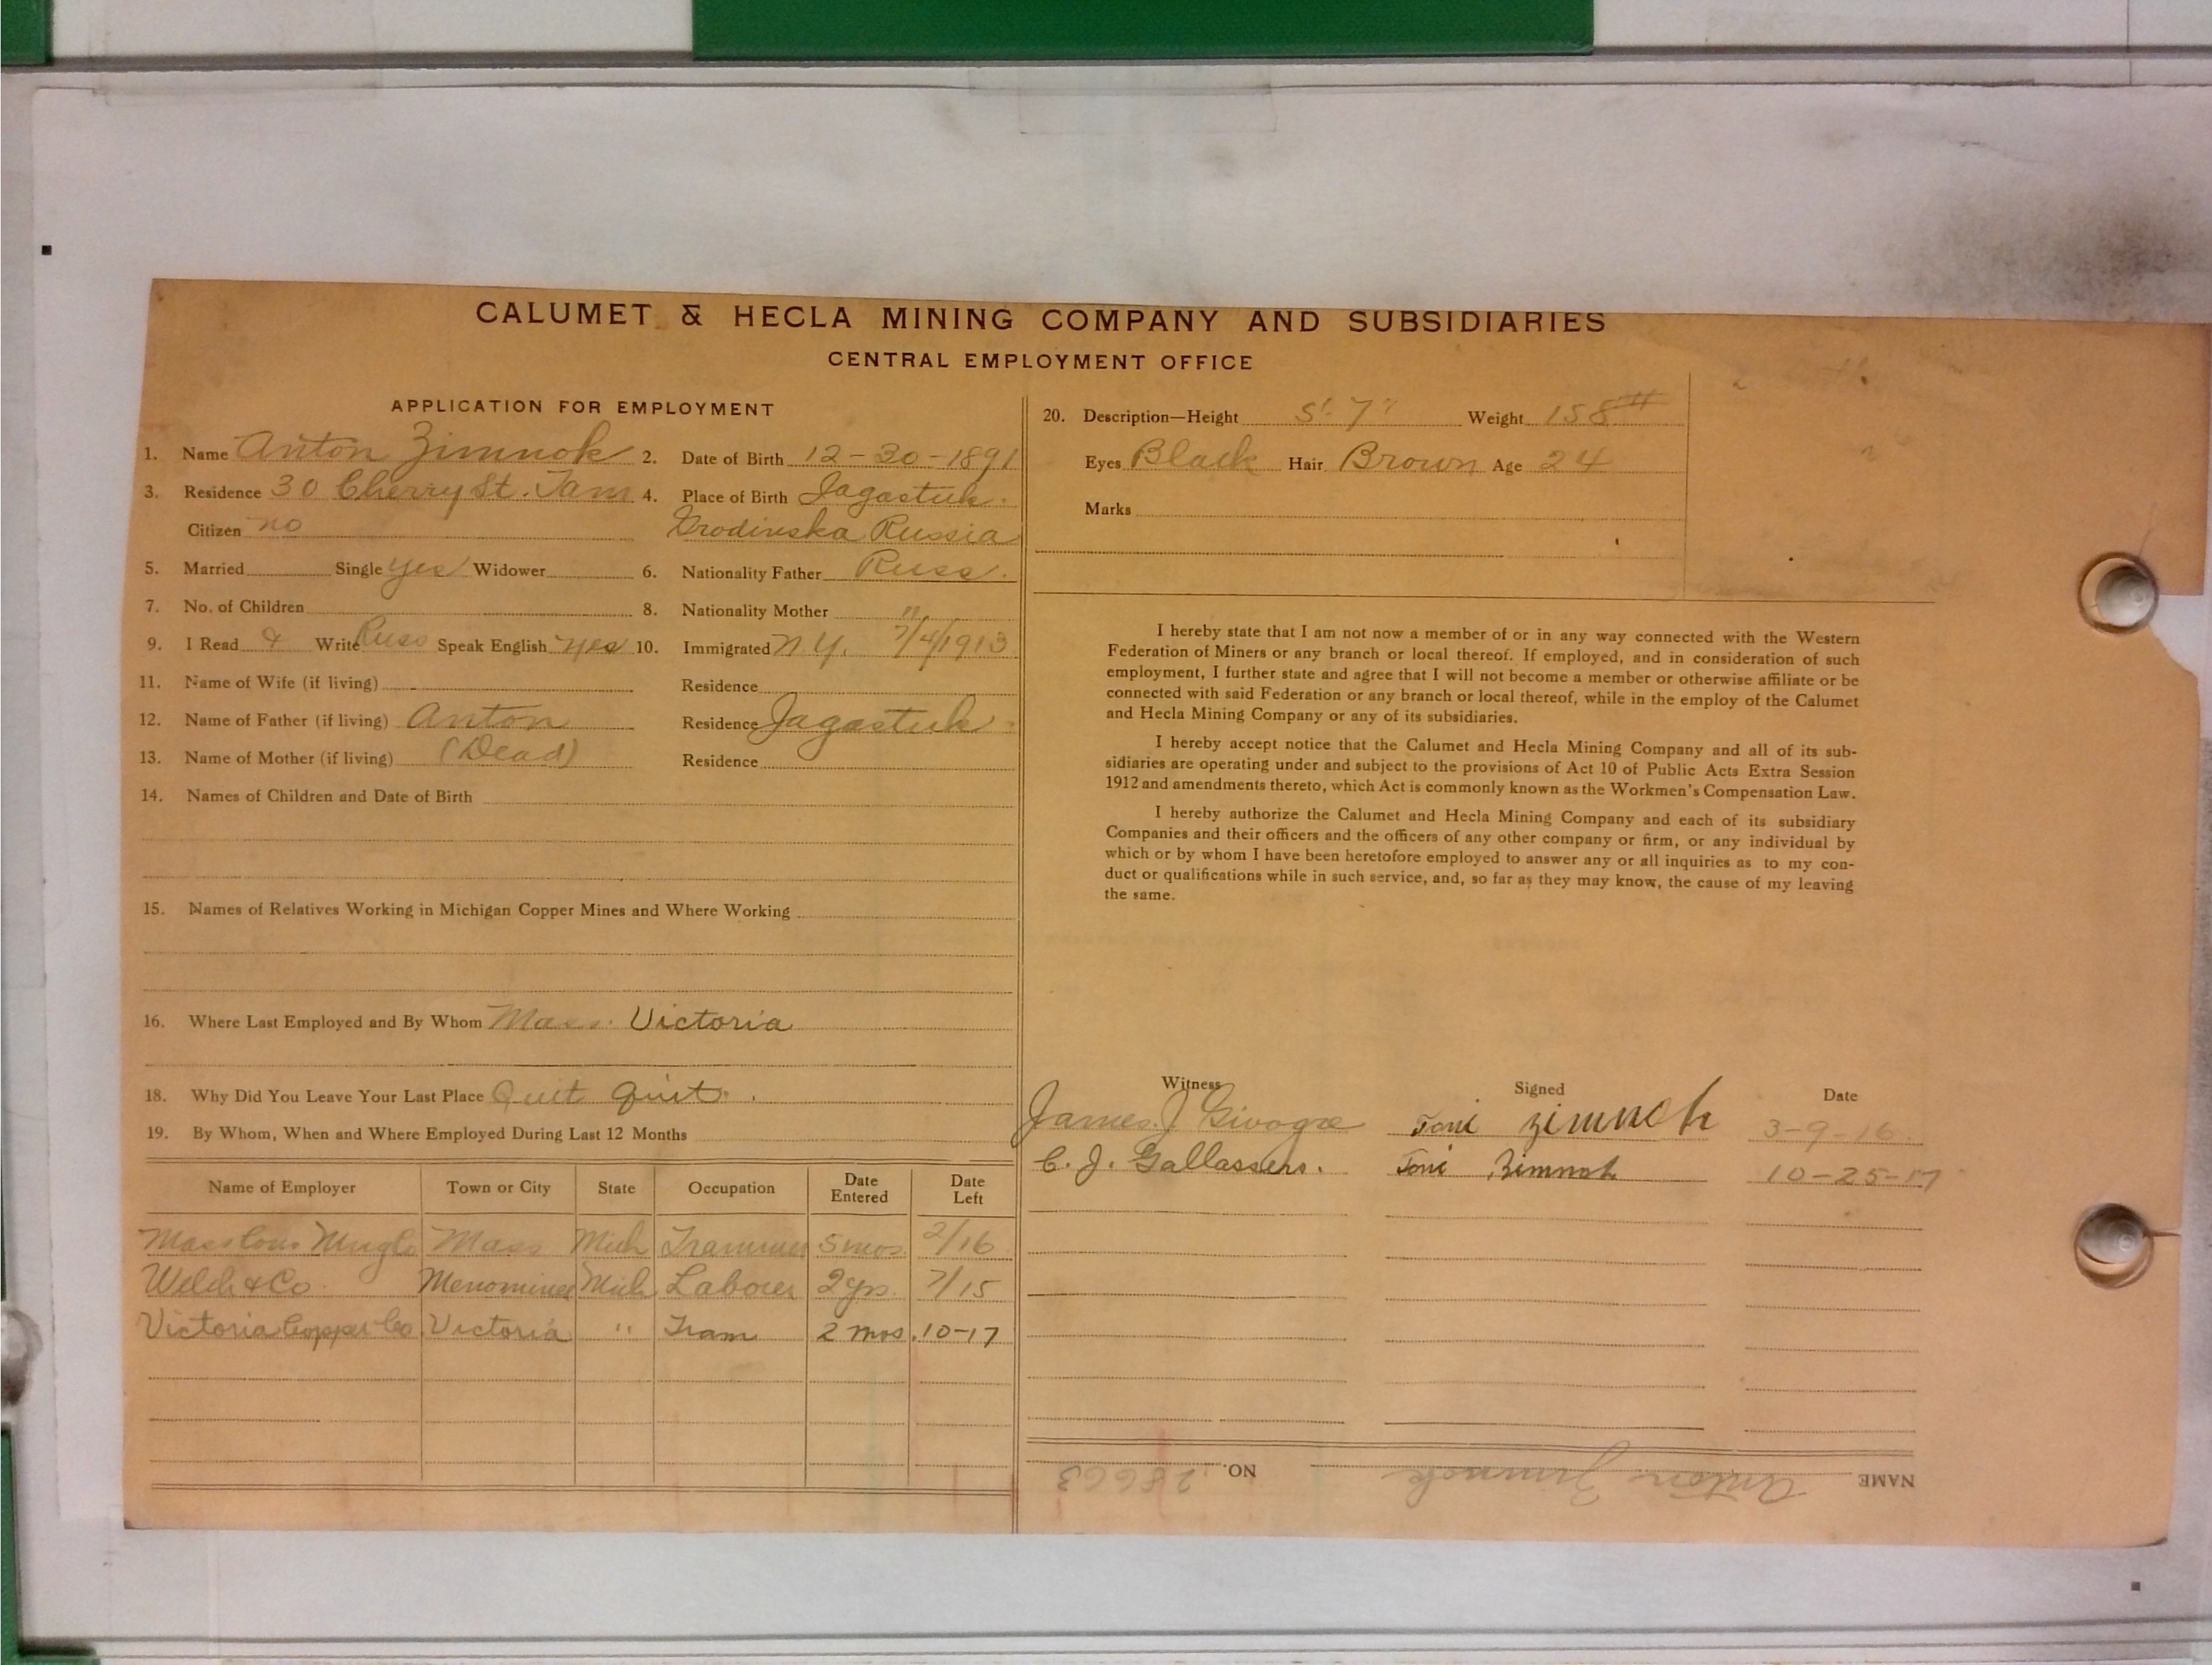 CALUMET & HECLA MINING COMPANY AND SUBSIDIARIES
CENTRAL EMPLOYMENT OFFICE
APPLICATION FOR EMPLOYMENT
1. Name Anton Zimnok 2. Date of Birth 12-30-1891
3. Residence 30 Cherry St. Tam 4. Place of Birth Jagastuk.
Citizen no Grodinska Russia
5. Married Single yes Widower 6. Nationality Father Russ.
7. No. of Children 8. Nationality Mother "
9. I Read & Write Russ Speak English yes 10. Immigrated N.Y. 7/4/1913
11. Name of Wife (if living) Residence
12. Name of Father (if living) Anton Residence Jagastuk
13. Name of Mother (if living) (Dead) Residence
14. Names of Children and Date of Birth
15. Names of Relatives Working in Michigan Copper Mines and Where Working
16. Where Last Employed and By Whom Mass. Victoria
18. Why Did You Leave Your Last Place Quit Quit.
19. By Whom, When and Where Employed During Last 12 Months
Name of Employer Town or City State Occupation Date Entered Date Left
Mass Cons Mass Mich Trammer 5 mos. 2/16
Welch & Co. Menominee Mich Laborer 2 yrs. 7/15
Victoria Copper Co. Victoria " Tram 2 mos. 10-17
20. Description—Height 5' 7" Weight 158 #
Eyes Black Hair Brown Age 24
Marks
I hereby state that I am not now a member of or in any way connected with the Western
Federation of Miners or any branch or local thereof. If employed, and in consideration of such
employment, I further state and agree that I will not become a member or otherwise affiliate or be
connected with said Federation or any branch or local thereof, while in the employ of the Calumet
and Hecla Mining Company or any of its subsidiaries.
I hereby accept notice that the Calumet and Hecla Mining Company and all of its sub-
sidiaries are operating under and subject to the provisions of Act 10 of Public Acts Extra Session
1912 and amendments thereto, which Act is commonly known as the Workmen's Compensation Law.
I hereby authorize the Calumet and Hecla Mining Company and each of its subsidiary
Companies and their officers and the officers of any other company or firm, or any individual by
which or by whom I have been heretofore employed to answer any or all inquiries as to my con-
duct or qualifications while in such service, and, so far as they may know, the cause of my leaving
the same.
Witness Signed Date
James J Givogre Toni Zimnoh 3-9-16.
C. J. Gallassero. Toni Zimnoh 10-25-17
NAME Anton Zimnok NO. 28663